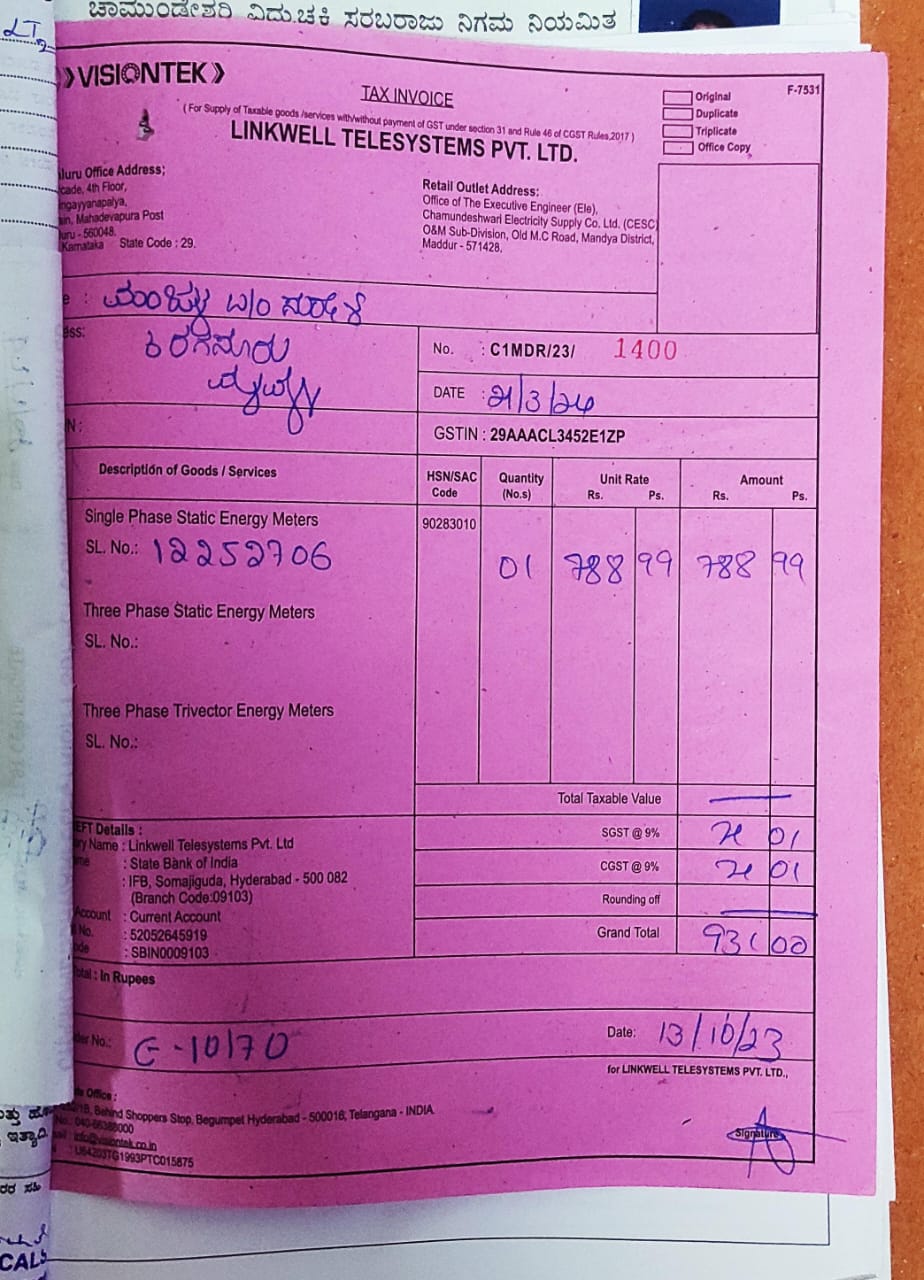 ಚಾಮುಂಡೇಶ್ವರಿ ವಿದ್ಯುಚ್ಛಕ್ತಿ ಸರಬರಾಜು ನಿಗಮ ನಿಯಮಿತ
VISIONTEK
TAX INVOICE
( For Supply of Taxable goods /services with/without payment of GST under section 31 and Rule 46 of CGST Rules,2017 )
LINKWELL TELESYSTEMS PVT. LTD.
F-7531
Original
Duplicate
Triplicate
Office Copy
luru Office Address;
cade, 4th Floor,
ngayyanapalya,
ain, Mahadevapura Post
uru - 560048.
Karnataka State Code : 29.
Retail Outlet Address:
Office of The Executive Engineer (Ele),
Chamundeshwari Electricity Supply Co. Ltd. (CESC)
O&M Sub-Division, Old M.C Road, Mandya District,
Maddur - 571428.
e :
ess:
No. : C1MDR/23/ 1400
DATE : 21/3/24
N :
GSTIN : 29AAACL3452E1ZP
Description of Goods / Services HSN/SAC Code Quantity (No.s) Unit Rate Rs. Ps. Amount Rs. Ps.
Single Phase Static Energy Meters 90283010
SL. No.: 12252706 01 788 99 788 99
Three Phase Static Energy Meters
SL. No.:
Three Phase Trivector Energy Meters
SL. No.:
Total Taxable Value
SGST @ 9% 71 01
CGST @ 9% 71 01
Rounding off
Grand Total 931 00
EFT Details :
ry Name : Linkwell Telesystems Pvt. Ltd
me : State Bank of India
: IFB, Somajiguda, Hyderabad - 500 082
(Branch Code:09103)
Account : Current Account
No. : 52052645919
ode : SBIN0009103
otal : In Rupees
der No.: E-10/70
Date: 13/10/23
for LINKWELL TELESYSTEMS PVT. LTD.,
Office :
1B, Behind Shoppers Stop, Begumpet Hyderabad - 500016, Telangana - INDIA
No.: 040-66388000
info@visiontek.co.in
: U64203TG1993PTC015875
Signature
CALS